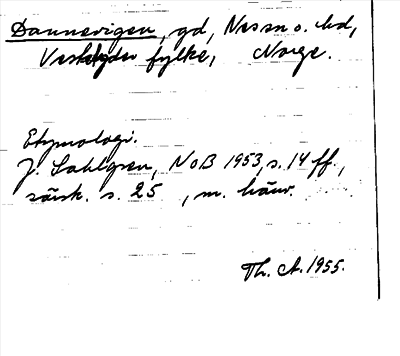 Dannevigen, gd, Nes sn o. hd,
Vestagder fylke, Norge.
Etymologi.
J. Sahlgren, NoB 1953, s. 14 ff.,
särsk. s. 25, m. hänv.
Th. A. 1955.